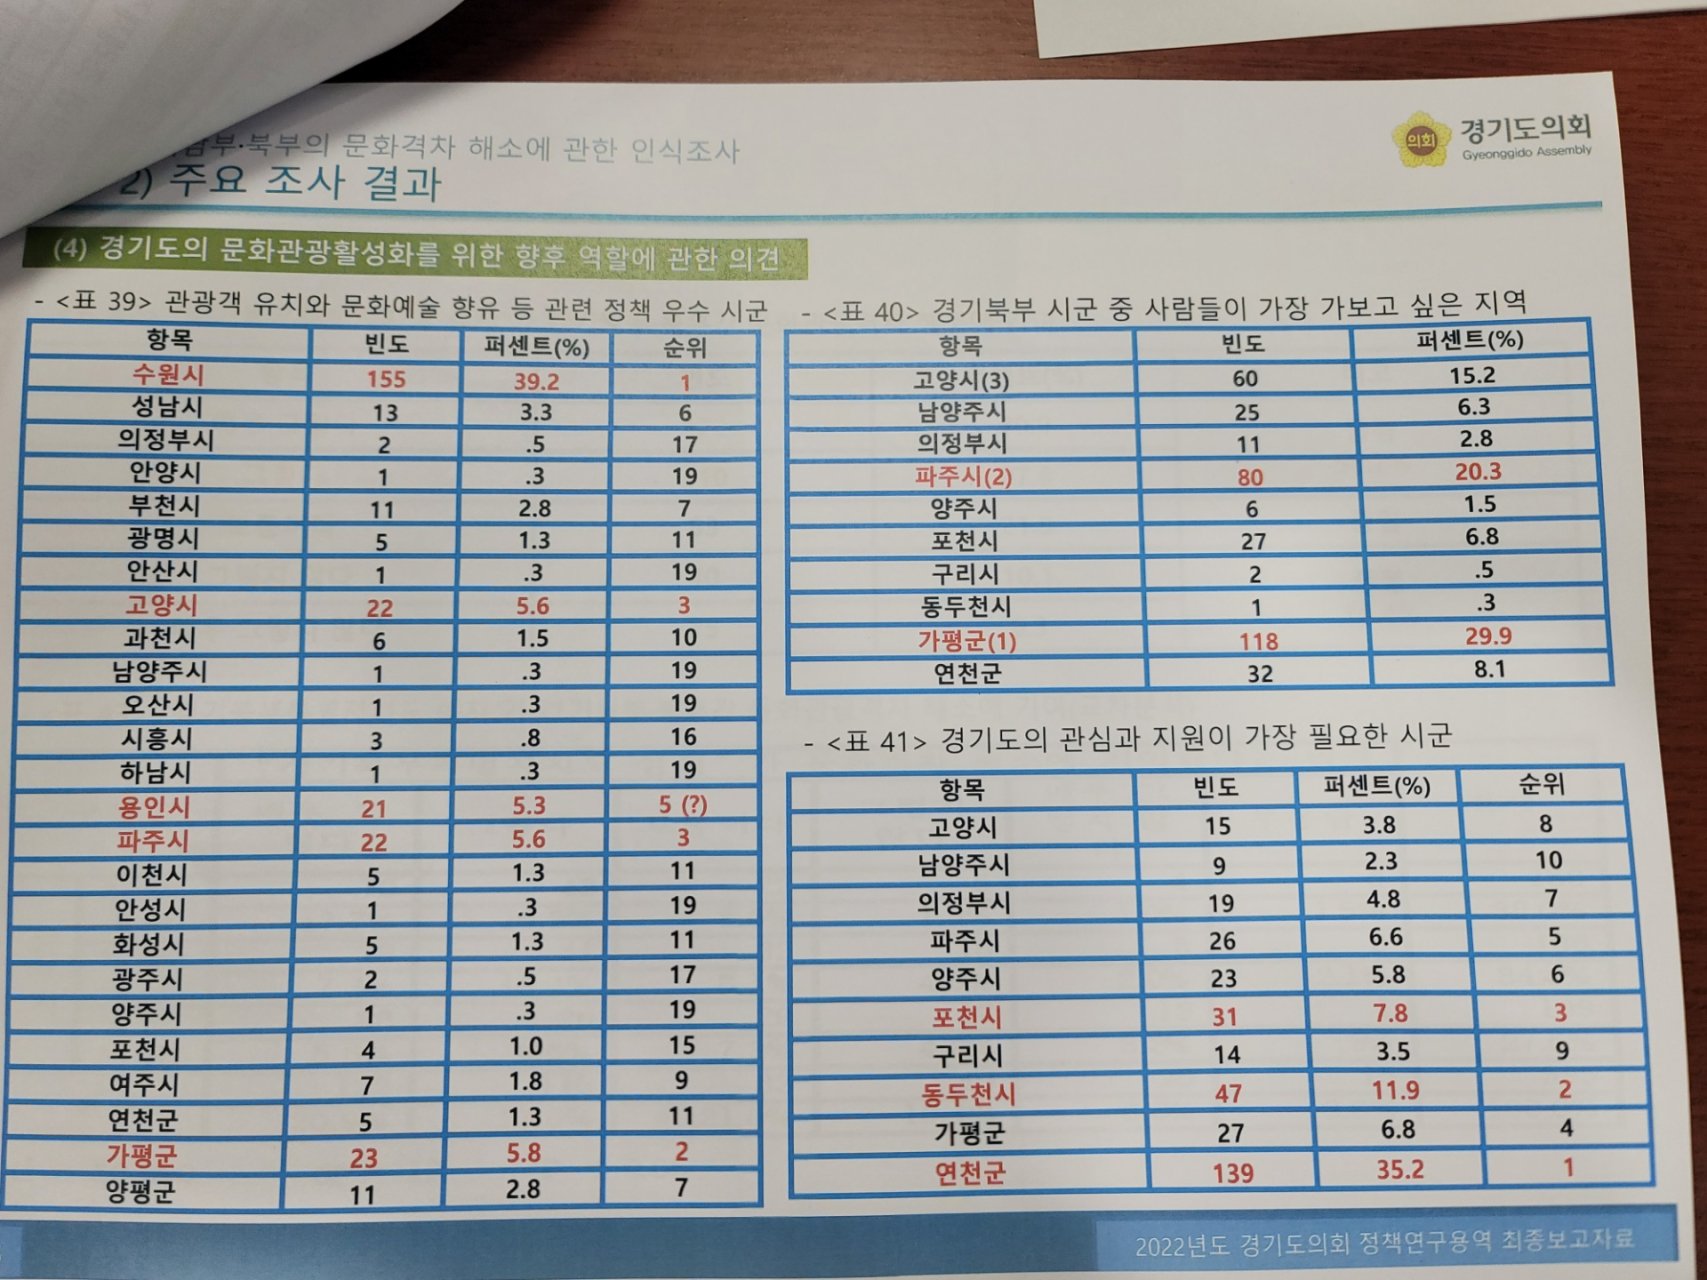 남부·북부의 문화격차 해소에 관한 인식조사
2) 주요 조사 결과
의회
경기도의회
Gyeonggido Assembly
(4) 경기도의 문화관광활성화를 위한 향후 역할에 관한 의견
- <표 39> 관광객 유치와 문화예술 향유 등 관련 정책 우수 시군
항목 빈도 퍼센트(%) 순위
수원시 155 39.2 1
성남시 13 3.3 6
의정부시 2 .5 17
안양시 1 .3 19
부천시 11 2.8 7
광명시 5 1.3 11
안산시 1 .3 19
고양시 22 5.6 3
과천시 6 1.5 10
남양주시 1 .3 19
오산시 1 .3 19
시흥시 3 .8 16
하남시 1 .3 19
용인시 21 5.3 5 (?)
파주시 22 5.6 3
이천시 5 1.3 11
안성시 1 .3 19
화성시 5 1.3 11
광주시 2 .5 17
양주시 1 .3 19
포천시 4 1.0 15
여주시 7 1.8 9
연천군 5 1.3 11
가평군 23 5.8 2
양평군 11 2.8 7
- <표 40> 경기북부 시군 중 사람들이 가장 가보고 싶은 지역
항목 빈도 퍼센트(%)
고양시(3) 60 15.2
남양주시 25 6.3
의정부시 11 2.8
파주시(2) 80 20.3
양주시 6 1.5
포천시 27 6.8
구리시 2 .5
동두천시 1 .3
가평군(1) 118 29.9
연천군 32 8.1
- <표 41> 경기도의 관심과 지원이 가장 필요한 시군
항목 빈도 퍼센트(%) 순위
고양시 15 3.8 8
남양주시 9 2.3 10
의정부시 19 4.8 7
파주시 26 6.6 5
양주시 23 5.8 6
포천시 31 7.8 3
구리시 14 3.5 9
동두천시 47 11.9 2
가평군 27 6.8 4
연천군 139 35.2 1
2022년도 경기도의회 정책연구용역 최종보고자료